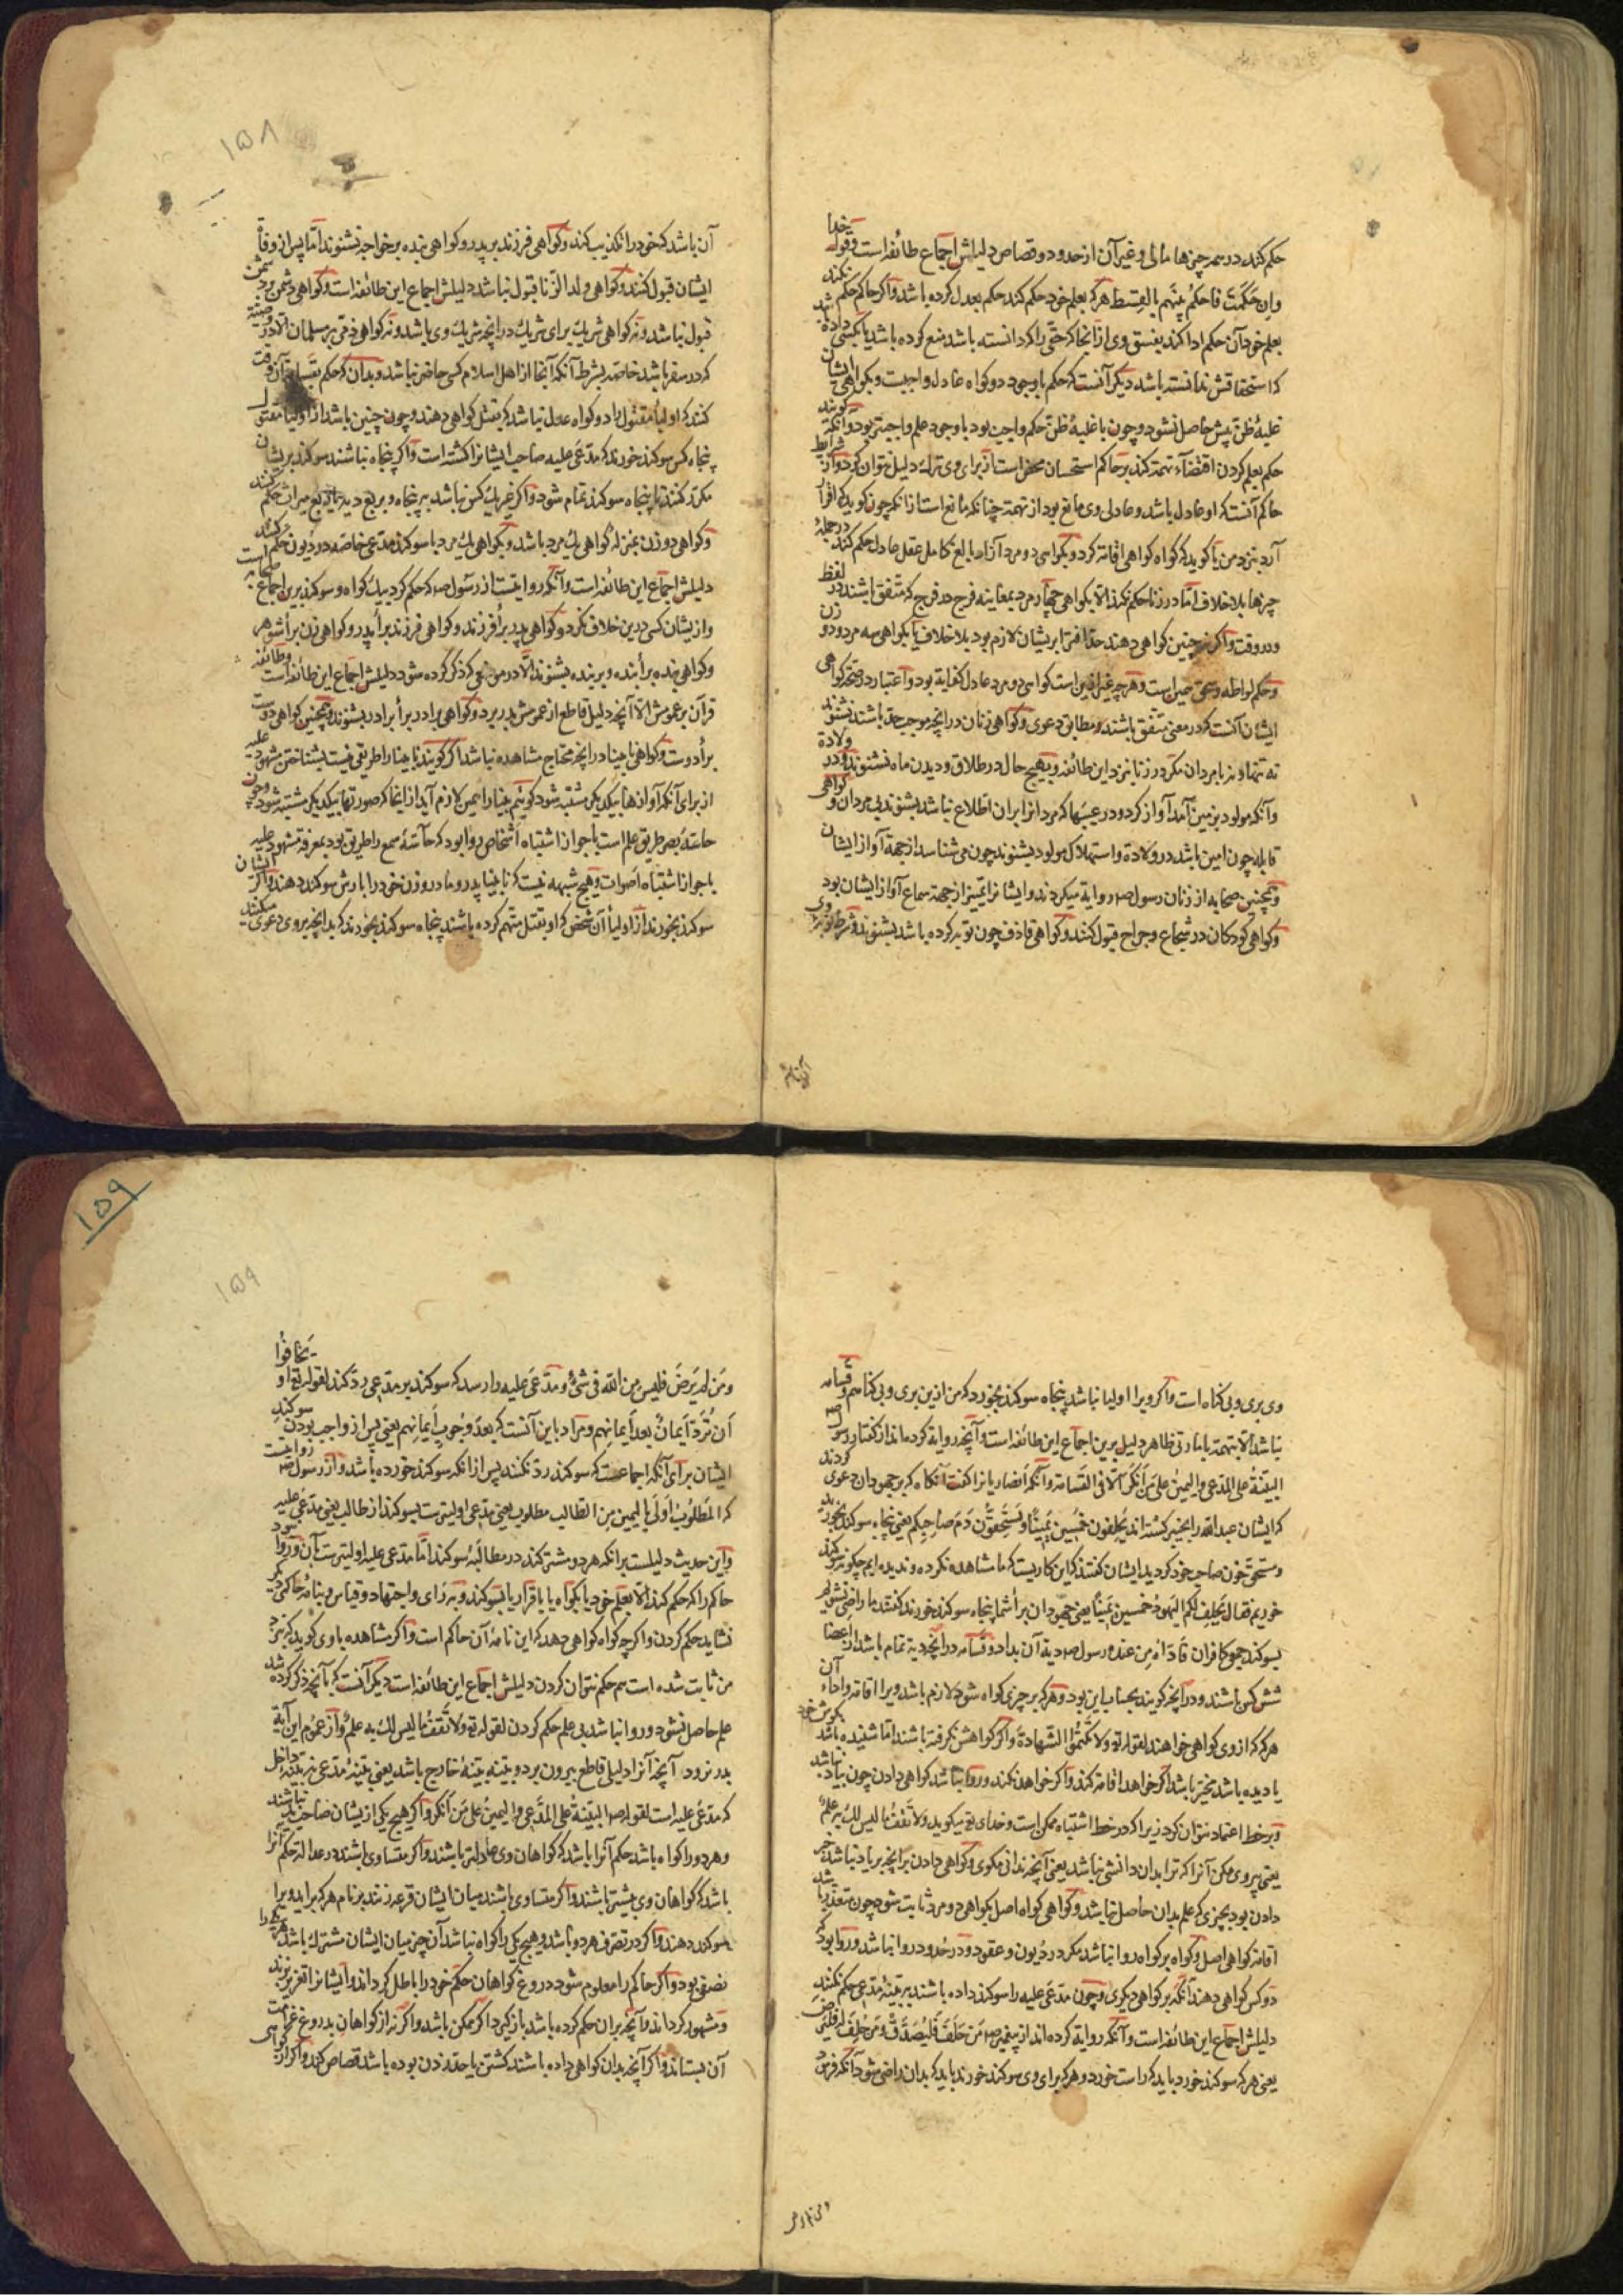 حکم کند در همه چیزها مالی و غیر آن از حدود و قصاص دلیلش اجماع طائفه است و قوله خدا
وان حکمت فاحکم بینهم بالقسط هر که بعلم خود حکم کند حکم بعدل کرده باشد و اگر حاکم حکم نکند
بعلم خود آن حکم ادا کند بفسق وی از آنجا که حقی را که دانسته باشد منع کرده باشد یا بکسی داده شد
که استحقاقش ندانسته باشد دیگر آنست که حکم با وجود دو گواه عادل واجبست و بگواهی ایشان
غلبهٔ ظن بیش حاصل نشود و چون با غلبهٔ ظن حکم واجب بود با وجود علم واجبتر بود و آنکه گویند
حکم بعلم کردن اقتضاء تهمت کند بر حاکم استحسان محض است از برای وی ترک دلیل نتوان کرد و از شرایط
حاکم آنست که او عادل باشد و عادلی وی مانع بود از تهمة چنانکه مانع است از آنکه چون گوید که اقرار
آرد بنزد من یا گوید که گواه گواهی اقامه کرد و بگواهی دو مرد آزاد بالغ کامل عقل عادل حکم کند در جملهٔ
چیزها بلا خلاف امّا در زنا حکم نکند الا بگواهی چهار مرد بمعاینه فرج در فرج که متفق باشند در لفظ
و در وقت و اگر نه چنین گواهی دهند حدّ افترا بریشان لازم بود بلا خلاف یا بگواهی سه مرد و دو زن
و حکم لواطه و سحق همین است و هر چه غیر ازین است گواهی دو مرد عادل کفایة بود و اعتبار در صحّة گواهی
ایشان آنست که در معنی متّفق باشند و مطابق دعوی و گواهی زنان در آنچه موجب حد باشد نشنوند
نه تنها و نه با مردان مگر در زنا نزد این طائفه و بهیچ حال در طلاق و دیدن ماه نشنوند و در ولادة
و آنکه مولود بزمین آمد آواز کرد و در عیبها که مردانرا بران اطلاع نباشد بشنوند بی مردان و گواهی
قابله چون امین باشد در ولادة و استهلاک مولود بشنوند چون می شناسد از جهة آواز ایشان
و همچنین صحابه از زنان رسول ص روایة میکردند و ایشانرا تمییز از جهة سماع آواز ایشان بود
و گواهی کودکان در شجاع و جراح قبول کنند و گواهی قاذف چون توبه کرده باشد بشنوند و شرط توبهٔ وی
۱۵۸
آن باشد که خود را تکذیب کند و گواهی فرزند بر پدر و گواهی بنده بر خواجه نشنوند امّا پس از وفاة
ایشان قبول کنند و گواهی ولد الزّنا قبول نباشد دلیلش اجماع این طائفه است و گواهی دشمن بر دشمن
قبول نباشد و نه گواهی شریک برای شریک در آنچه شریک وی باشد و نه گواهی ذمّی بر مسلمان الا در وصیّة
که در سفر باشد خاصّه بشرط آنکه آنجا از اهل اسلام کسی حاضر نباشد و بدان که حکم بقسامه آن وقت
کنند که اولیاء مقتول را دو گواه عدل نباشد که بقتل گواهی دهند و چون چنین باشد از اولیاء مقتول
پنجاه کس سوگند خورند که مدّعی علیه صاحب ایشانرا کشته است و اگر پنجاه نباشند سوگند بریشان
مکرّر کنند تا پنجاه سوگند تمام شود و اگر جز یک کس نباشد به پنجاه و بربع دیه یا بربع میراث حکم کنند
و گواهی دو زن بمنزلهٔ گواهی یک مرد باشد و بگواهی یک مرد با سوگند مدّعی خاصّه در دیون حکم کنند
دلیلش اجماع این طائفه است و آنکه روایتست از رسول ص که حکم کرد بیک گواه و سوگند برین اجماع صحابه است
و از یشان کسی درین خلاف نکرد و گواهی پدر برأ فرزند و گواهی فرزند برأ پدر و گواهی زن برأ شوهر
و گواهی بنده برأ بنده و بر بنده بشنوند الّا در موضعی که ذکر کرده شود دلیلش اجماع این طائفه است و ظاهر
قرآن بر عمومش الّا آنچه دلیل قاطع از عمومش بدر برد و گواهی برادر برأ برادر بشنوند و همچنین گواهی دوست
برأ دوست و گواهی نابینا در آنچه محتاج مشاهده نباشد اگر گویند نابینا را طریقی نیست بشناختن مشهود علیه
از برای آنکه آوازها بیکدیگر مشتبه شود گوئیم بینا را همین لازم آید از آنجا که صورتها بیکدیگر مشتبه شود و چون
حاسّهٔ بصر طریق علم است با جواز اشتباه اشخاص روا بود که حاسّهٔ سمع را طریق بود بمعرفة مشهود علیه
با جواز اشتباه اصوات و هیچ شبهه نیست که نابینا پدر و مادر و زن خود را باز شناسد و اگر ایشان
سوگند نخورند از اولیاء آن شخص که او بقتل متّهم کرده باشند پنجاه سوگند بخورند که بدانچه بر وی دعوی میکنند
۱۵۹
وی بری و بی گناه است و اگر ویرا اولیا نباشد پنجاه سوگند بخورد که من ازین بری و بی گناهم و قسامه
نباشد الا بتهمة با امارتی ظاهر دلیل برین اجماع این طائفه است و آنچه روایة کرده اند از گفتار رسول ص
البیّنة علی المدّعی والیمین علی من انکر الّا فی القسامة و آنکه انصاریانرا گفت آنگاه که بر جهودان دعوی کردند
که ایشان عبدالله را بخیبر کشته اند یحلفون خمسین یمیناً و تستحقّون دم صاحبکم یعنی پنجاه سوگند بخورید
و مستحق خون صاحب خود گردید ایشان گفتند که این کاریست که ما مشاهده نکرده و ندیده ایم چگونه سوگند
خوریم فقال یحلف لکم الیهود خمسین یمیناً یعنی جهودان برأ شما پنجاه سوگند خورند گفتند ما راضی نشویم
بسوگند جمع کافران فَاَدّاهُ مِن عنده رسول ص دیة آن بداد و قسامه در آنچه دیة تمام باشد از اعضا
شش کس باشند و در آنچه کمتر بحساب این بود و هر که بر چیزی گواه شود لازم باشد ویرا اقامة و اداء آن
هرگه که از وی گواهی خواهند لقوله تع ولا تکتموا الشّهادة و اگر گواهش نگرفته باشند امّا شنیده باشد بگوش خود
یا دیده باشد مخیّر باشد اگر خواهد اقامه کند و اگر خواهد نکند و روا نباشد گواهی دادن چون بیاد نباشد
و بر خط اعتماد نتوان کرد زیرا که در خط اشتباه ممکن است و خدای تع میگوید ولا تقف ما لیس لک به علم
یعنی پیروی مکن آنرا که ترا بدان دانشی نباشد یعنی آنچه ندانی مگوی و گواهی دادن بر آنچه بر یاد نباشد خبر
دادن بود بچیزی که علم بدان حاصل نباشد و گواهی گواه اصل بگواهی دو مرد ثابت شود چون متعذّر باشد
اقامهٔ گواهی اصل و گواه بر گواه روا نباشد مگر در دیون و عقود و در حدود روا نباشد و روا بود که
دو کس گواهی دهند آنگه بر گواهی دیگری و چون مدّعی علیه را سوگند داده باشند ببیّنهٔ مدّعی حکم نکنند
دلیلش اجماع این طائفه است و آنکه روایة کرده اند از پیغمبر ص من حَلَفَ فلیصدق و من حُلِفَ له فلیرض
یعنی هر که سوگند خورد باید که راست خورد و هر که برای وی سوگند خورند باید که بدان راضی شود آنگه فرمود
و من لم یرض فلیس من الله فی شیءٍ و مدّعی علیه را رسد که سوگند بر مدّعی ردّ کند لقوله تع او یخافوا
ان تردّ ایمانٌ بعد ایمانهم و مراد باین آنست که بعد وجوب ایمانهم یعنی پس از واجب بودن سوگند
ایشان برای آنکه اجماعست که سوگند ردّ نکنند پس از آنکه سوگند خورده باشد و از رسول ص روایتست
که المطلوب اولی بالیمین من الطّالب مطلوب یعنی مدّعی علیه اولیترست بسوگند از طالب یعنی مدّعی
و این حدیث دلیلست بر آنکه هر دو مشترکند در مطالبهٔ سوگند امّا مدّعی علیه اولیترست بآن و روا نبود
حاکم را که حکم کند الّا بعلم خود یا بگواه یا باقرار یا بسوگند و نه رای و اجتهاد و قیاس و بنامهٔ حاکمی دیگر
نشاید حکم کردن و اگر چه گواه گواهی دهد که این نامهٔ آن حاکم است و اگر مشاهده با وی گوید که نزد
من ثابت شده است هم حکم نتوان کردن دلیلش اجماع این طائفه است دیگر آنست که بآنچه ذکر کرده شد
علم حاصل نشود و روا نباشد بی علم حکم کردن لقوله تع ولا تقف ما لیس لک به علم و از عموم این آیة
بدر نرود الا آنچه آنرا دلیلی قاطع بیرون برد و بیّنه بیّنهٔ خارج باشد یعنی بیّنهٔ مدّعی نه بیّنهٔ داخل
که مدّعی علیه است لقوله ص البیّنة علی المدّعی والیمین علی من انکر و اگر هیچ یکی از یشان صاحب ید نباشند
و هر دو را گواه باشد حکم آنرا باشد که گواهان وی عادلتر باشند و اگر متساوی باشند در عدالة حکم آنرا
باشد که گواهان وی بیشتر باشند و اگر متساوی باشند میان ایشان قرعه زنند بر نام هر که برآید ویرا
سوگند دهند و اگر در تصرّف هر دو باشد و هیچ یکی را گواه نباشد آن چیز میان ایشان مشترک باشد هر یکی را
نصفی بود و اگر حاکم را معلوم شود دروغ گواهان حکم خود را باطل گرداند و ایشانرا تعزیر زند
و مشهور گرداند و آنچه بران حکم کرده باشد باز گیرد اگر ممکن باشد و اگر نه از گواهان بدروغ غرامت
آن بستاند و اگر آنچه بدان گواهی داده باشند کشتن یا حد زدن بوده باشد قصاص کند و اگر از گواهی
۱۵۹